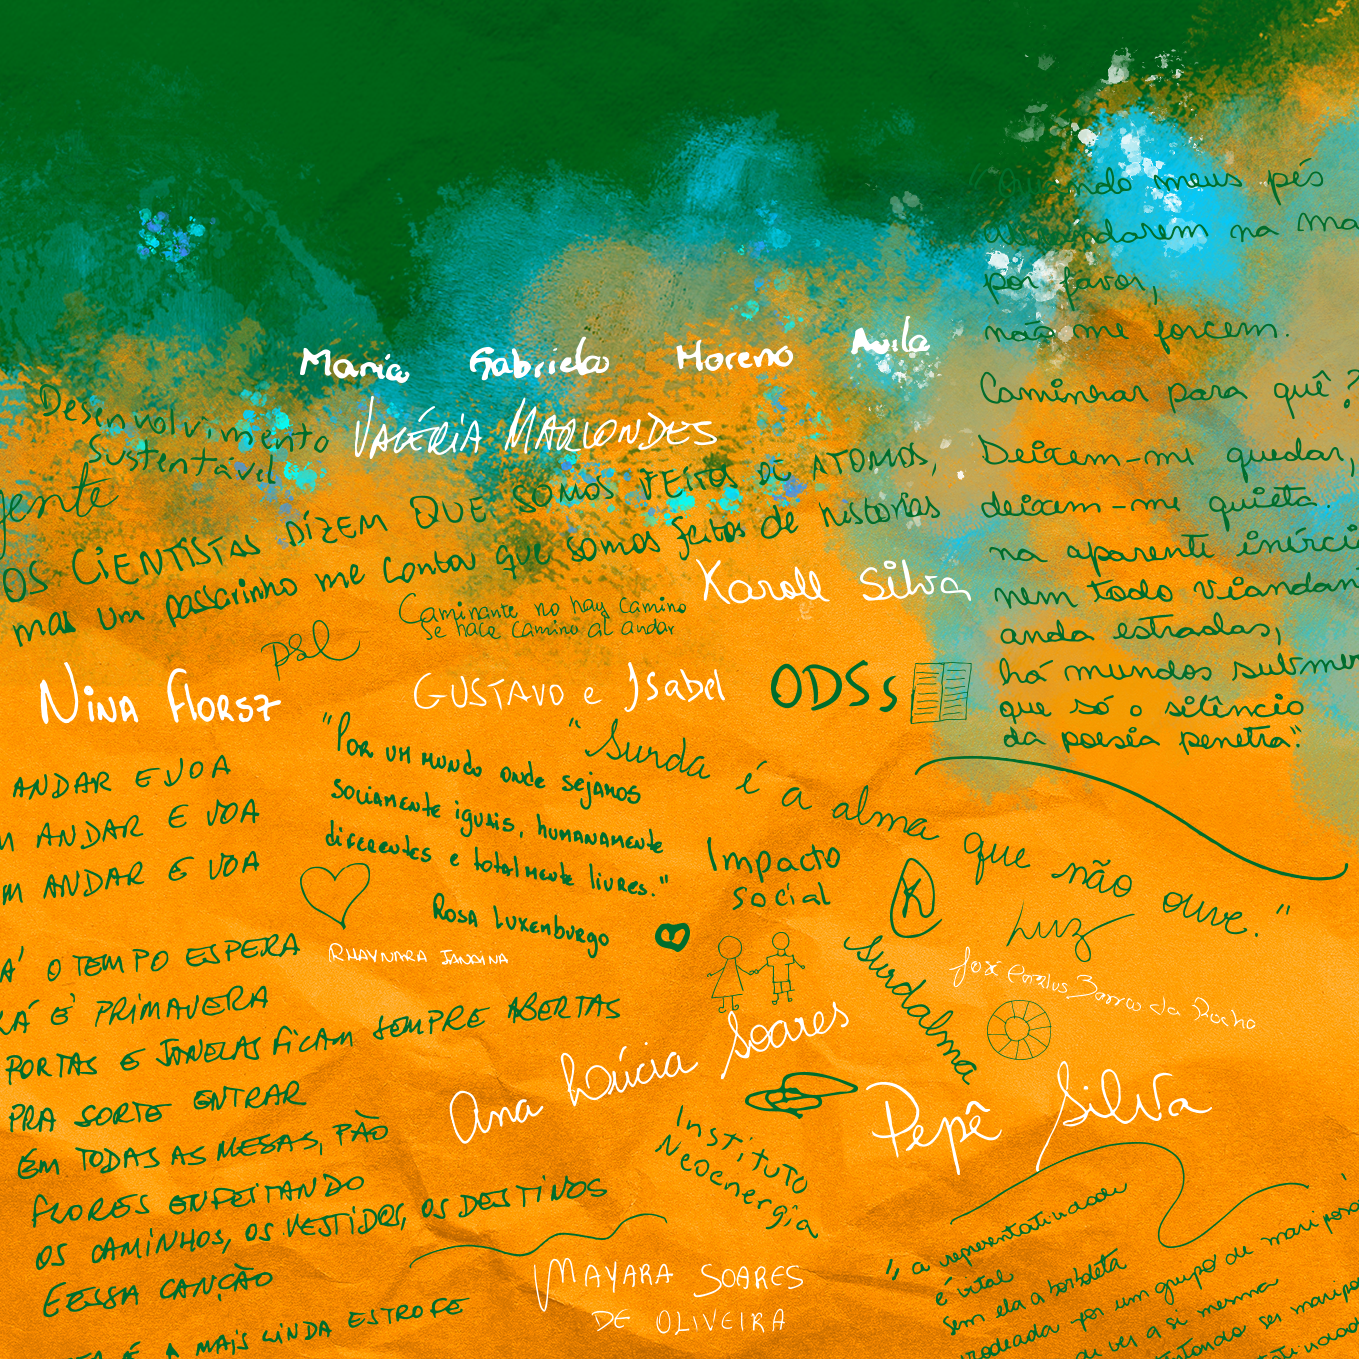 Maria Gabriela Moreno Avila
Valéria Marcondes
Desenvolvimento
Sustentável
gente
OS CIENTISTAS DIZEM QUE SOMOS FEITOS DE ATOMOS,
mas um passarinho me contou que somos feitos de histórias
Karoll Silva
Caminante no hay camino
se hace camino al andar
psl
NINA FLORSZ
GUSTAVO e Isabel
ODSs
"Quando meus pés
abrandarem na ma
por favor,
não me forcem.
Caminhar para quê?
Deixem-me quedar,
deixem-me quieta.
na aparente inérci
nem todo viandan
anda estradas,
há mundos submer
que só o silêncio
da poesia penetra".
"Por um mundo onde sejamos
socialmente iguais, humanamente
diferentes e totalmente livres."
Rosa Luxenburgo
"Surda é a alma que não ouve."
Luz
ANDAR E VOA
M ANDAR E VOA
M ANDAR E VOA
Impacto
social
K
RHAYNARA JANAINA
Surdalma
José Barros da Rocha
Á O TEMPO ESPERA
LÁ É PRIMAVERA
PORTAS E JANELAS FICAM SEMPRE ABERTAS
PRA SORTE ENTRAR
EM TODAS AS MESAS, PÃO
FLORES ENFEITANDO
OS CAMINHOS, OS VESTIDOS, OS DESTINOS
E ESSA CANÇÃO
É A MAIS LINDA ESTROFE
Ana Lúcia Soares
Pepê Silva
Instituto
Neoenergia
MAYARA SOARES
DE OLIVEIRA
"a representatividade
é vital
sem ela a borboleta
rodeada por um grupo de mariposa
ver a si mesma
tentando ser maripo